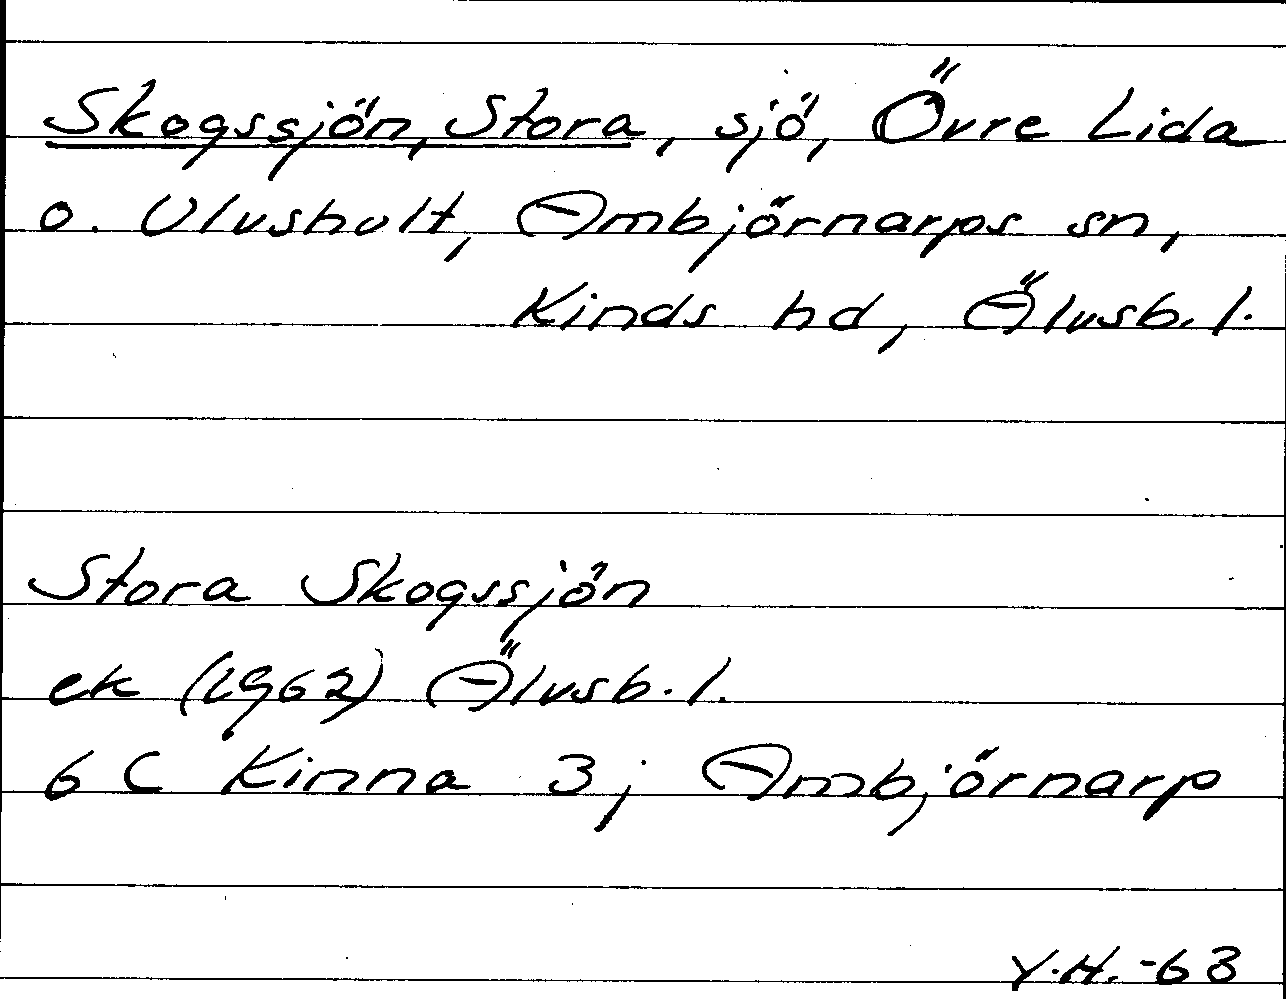 Skogssjön, Stora, sjö, Övre Lida
o. Ulvshult, Ambjörnarps sn,
Kinds hd, Älvsb. l.
Stora Skogssjön
ek (1962) Älvsb. l.
6 C Kinna 3j Ambjörnarp
Y.H. -63